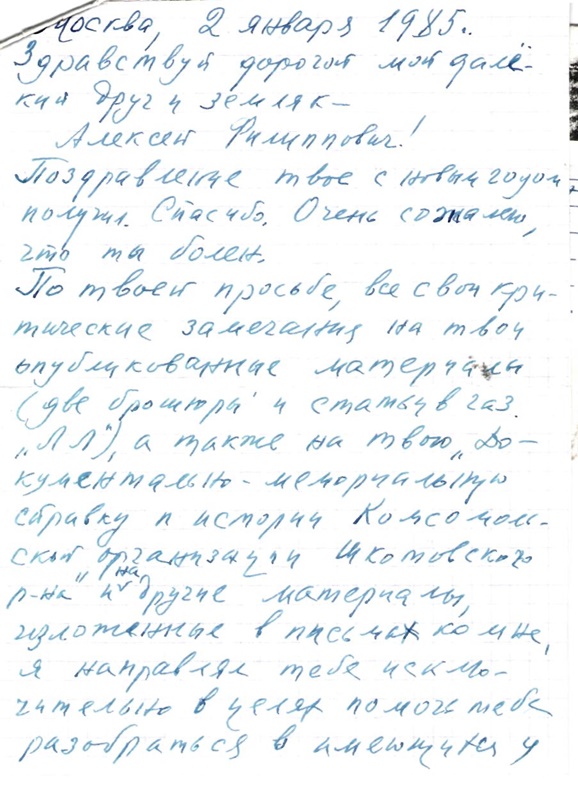 Москва, 2 января 1985.
Здравствуй дорогой мой далё-
кий друг и земляк –
Алексей Филиппович!
Поздравление твое с новым годом
получил. Спасибо. Очень сожалею,
что ты болен.
По твоей просьбе, все свои кри-
тические замечания на твои
опубликованные материалы
(две брошюры и статьи в газ.
„ЛЛ"), а также на твою „До-
кументально-мемориальную
справку п истории Комсомоль-
ской организации Шкотовского
р-на" и на другие материалы,
изложенные в письмах ко мне,
я направлял тебе исклю-
чительно в целях помочь тебе
разобраться в имеющихся у